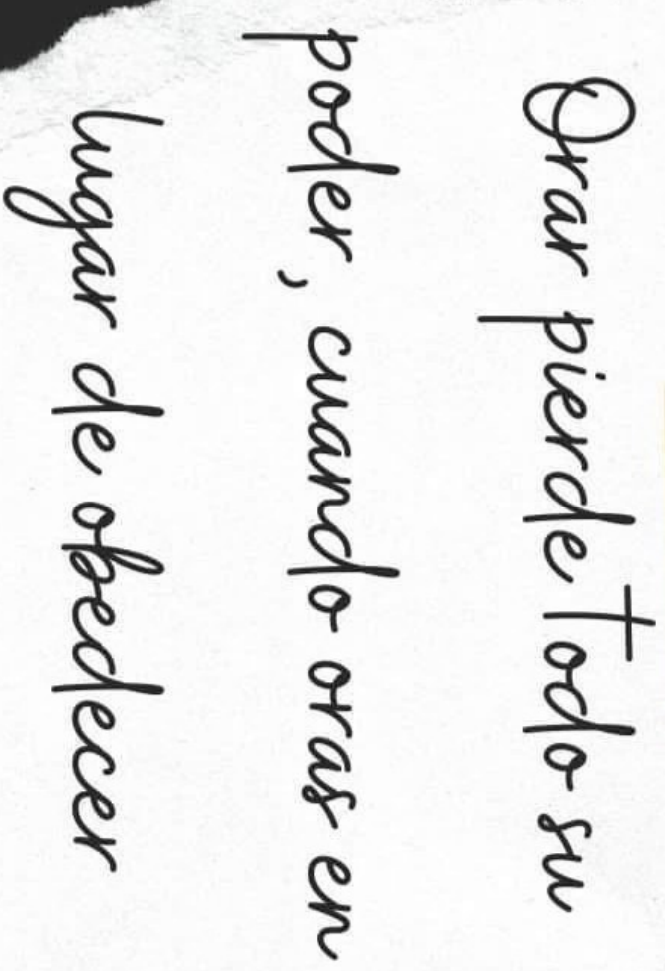 Orar pierde todo su
poder, cuando oras en
lugar de obedecer